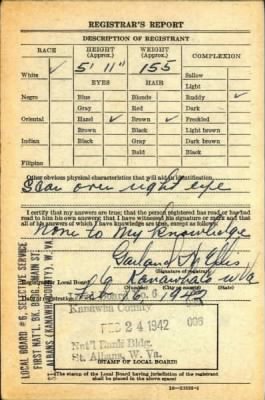 REGISTRAR'S REPORT
DESCRIPTION OF REGISTRANT
RACE
HEIGHT (Approx.)
WEIGHT (Approx.)
COMPLEXION
White ✓
5' 11"
155
Sallow
Light
EYES
HAIR
Negro
Blue
Blonde
Ruddy ✓
Gray
Red
Dark
Oriental
Hazel ✓
Brown ✓
Freckled
Brown
Black
Light brown
Indian
Black
Gray
Dark brown
Bald
Black
Filipino
Other obvious physical characteristics that will aid in identification
Scar over right eye
I certify that my answers are true; that the person registered has read or has had
read to him his own answers; that I have witnessed his signature or mark and that
all of his answers of which I have knowledge are true, except as follows:
None to My Knowledge
Garland H. Ellis
(Signature of registrar)
Registrar for Local Board 6 Kanawha W Va
Date of registration Feb 16, 1942
Local Board No. 6
Kanawha County
FEB 24 1942
006
Nat'l Bank Bldg.
St. Albans, W. Va.
(STAMP OF LOCAL BOARD)
(The stamp of the Local Board having jurisdiction of the registrant
shall be placed in the above space)
LOCAL BOARD #6, SELECTIVE SERVICE
FIRST NAT'L. BK. BLDG. MAIN ST.
ST. ALBANS (KANAWHA CTY), W. VA